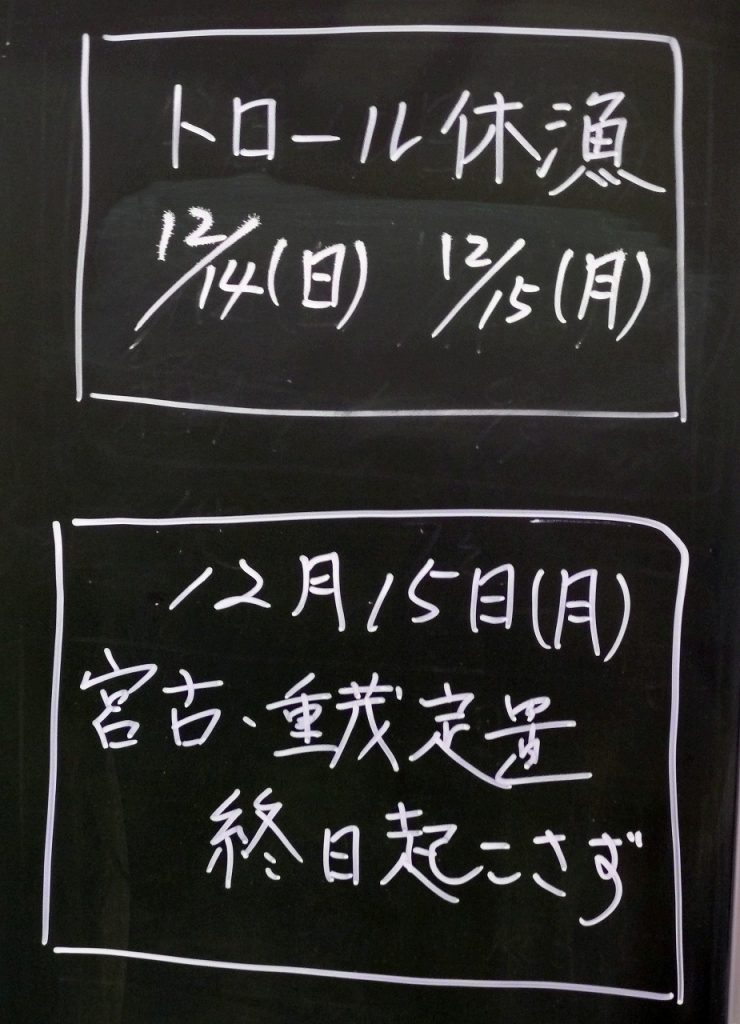 トロール休漁
12/14(日) 12/15(月)
12月15日(月)
宮古、重茂定置
終日起こさず